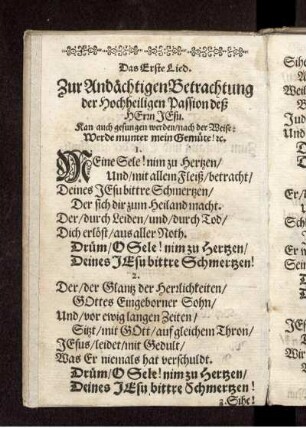 Das Erste Lied.
Zur Andächtigen Betrachtung
der Hochheiligen Passion deß
HErrn JEsu.
Kan auch gesungen werden/nach der Weise:
Werde munter mein Gemüte! ꝛc.
1.
MEine Sele! nim zu Hertzen/
Und/mit allem Fleiß/betracht/
Deines JEsu bittre Schmertzen/
Der sich dir zum Heiland macht.
Der/durch Leiden/und/durch Tod/
Dich erlöst/aus aller Noth.
Drüm/O Sele! nim zu Hertzen/
Deines JEsu bittre Schmertzen!
2.
Der/der Glantz der Herrlichkeiten/
GOttes Eingeborner Sohn/
Und/vor ewig langen Zeiten/
Sitzt/mit GOtt/auf gleichem Thron/
JEsus/leidet/mit Gedult/
Was Er niemals hat verschuldt.
Drüm/O Sele! nim zu Hertzen/
Deines JEsu/bittre Schmertzen!
3. Sihe!